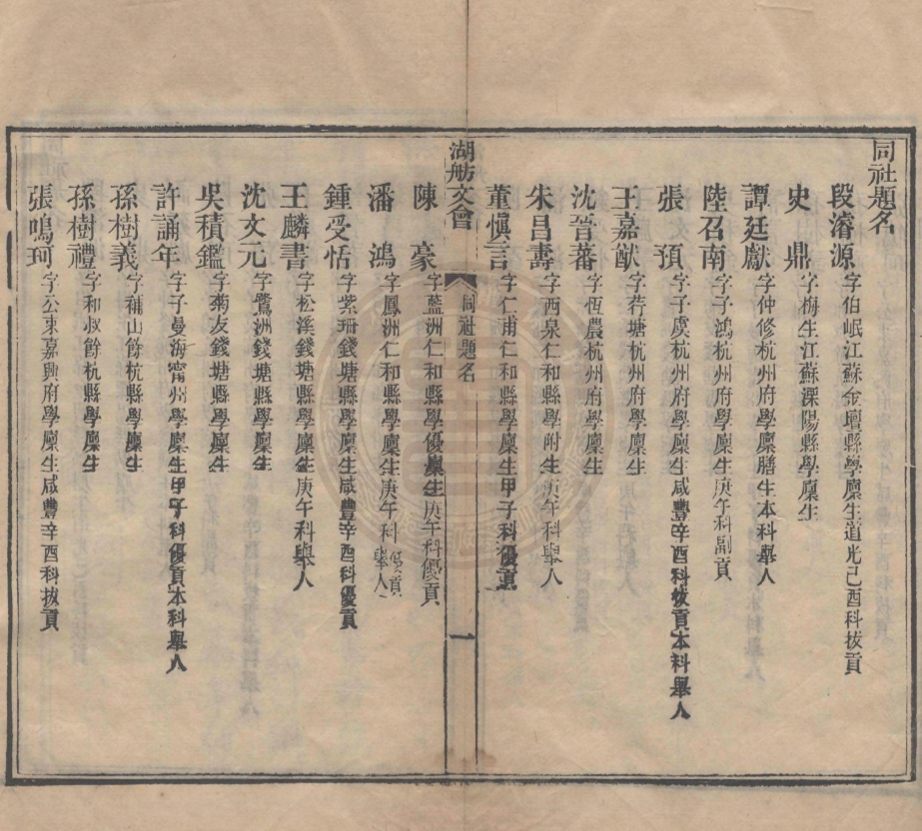 同社題名
段濬源 字伯岷江蘇金壇縣學廩生道光己酉科拔貢
史鼎 字梅生江蘇溧陽縣學廩生
譚廷獻 字仲修杭州府學廩膳生本科舉人
陸召南 字子鴻杭州府學廩生庚午科副貢
張預 字子虞杭州府學廩生咸豐辛酉科拔貢本科舉人
王嘉猷 字荇塘杭州府學廩生
沈晉蕃 字恆農杭州府學廩生
朱昌壽 字西泉仁和縣學附生庚午科舉人
董慎言 字仁甫仁和縣學廩生甲子科優貢
湖舫文會 同社題名 一
陳豪 字藍洲仁和縣學優廩生庚午科優貢
潘鴻 字鳳洲仁和縣學廩生庚午科優貢舉人
鍾受恬 字紫珊錢塘縣學廩生咸豐辛酉科優貢
王麟書 字松溪錢塘縣學廩生庚午科舉人
沈文元 字鷺洲錢塘縣學廩生
吳積鑑 字菊友錢塘縣學廩生
許誦年 字子曼海甯州學廩生甲子科優貢本科舉人
孫樹義 字補山餘杭縣學廩生
孫樹禮 字和叔餘杭縣學廩生
張鳴珂 字公束嘉興府學廩生咸豐辛酉科拔貢